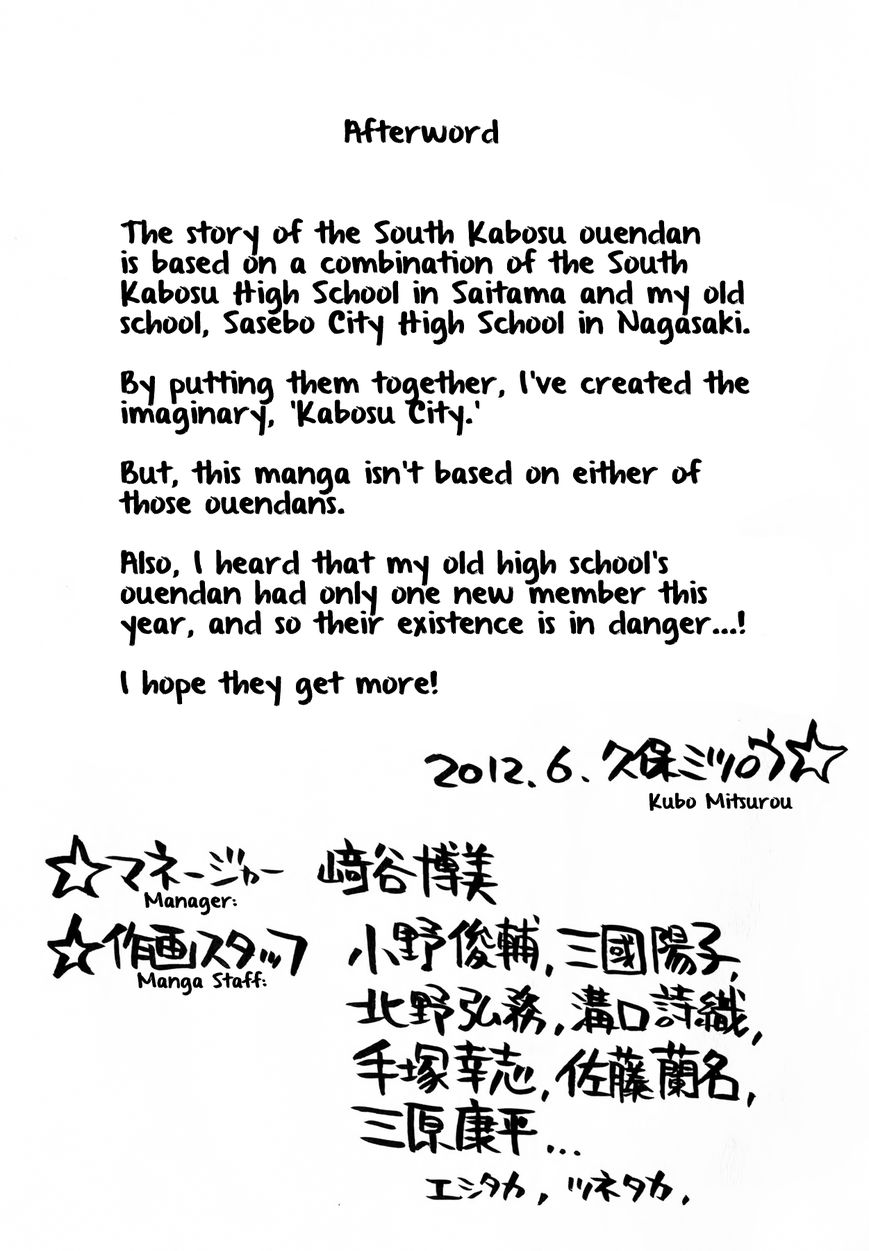 Afterword
The story of the South Kabosu ouendan
is based on a combination of the South
Kabosu High School in Saitama and my old
school, Sasebo City High School in Nagasaki.
By putting them together, I've created the
imaginary, 'Kabosu City.'
But, this manga isn't based on either of
those ouendans.
Also, I heard that my old high school's
ouendan had only one new member this
year, and so their existence is in danger...!
I hope they get more!
2012.6. 久保ミツロウ☆
Kubo Mitsurou
☆マネージャー 﨑谷博美
Manager:
☆作画スタッフ 小野俊輔,三國陽子,
Manga Staff:
北野弘務,溝口詩織,
手塚幸志,佐藤蘭名,
三原康平...
エシタカ,ツネタカ,